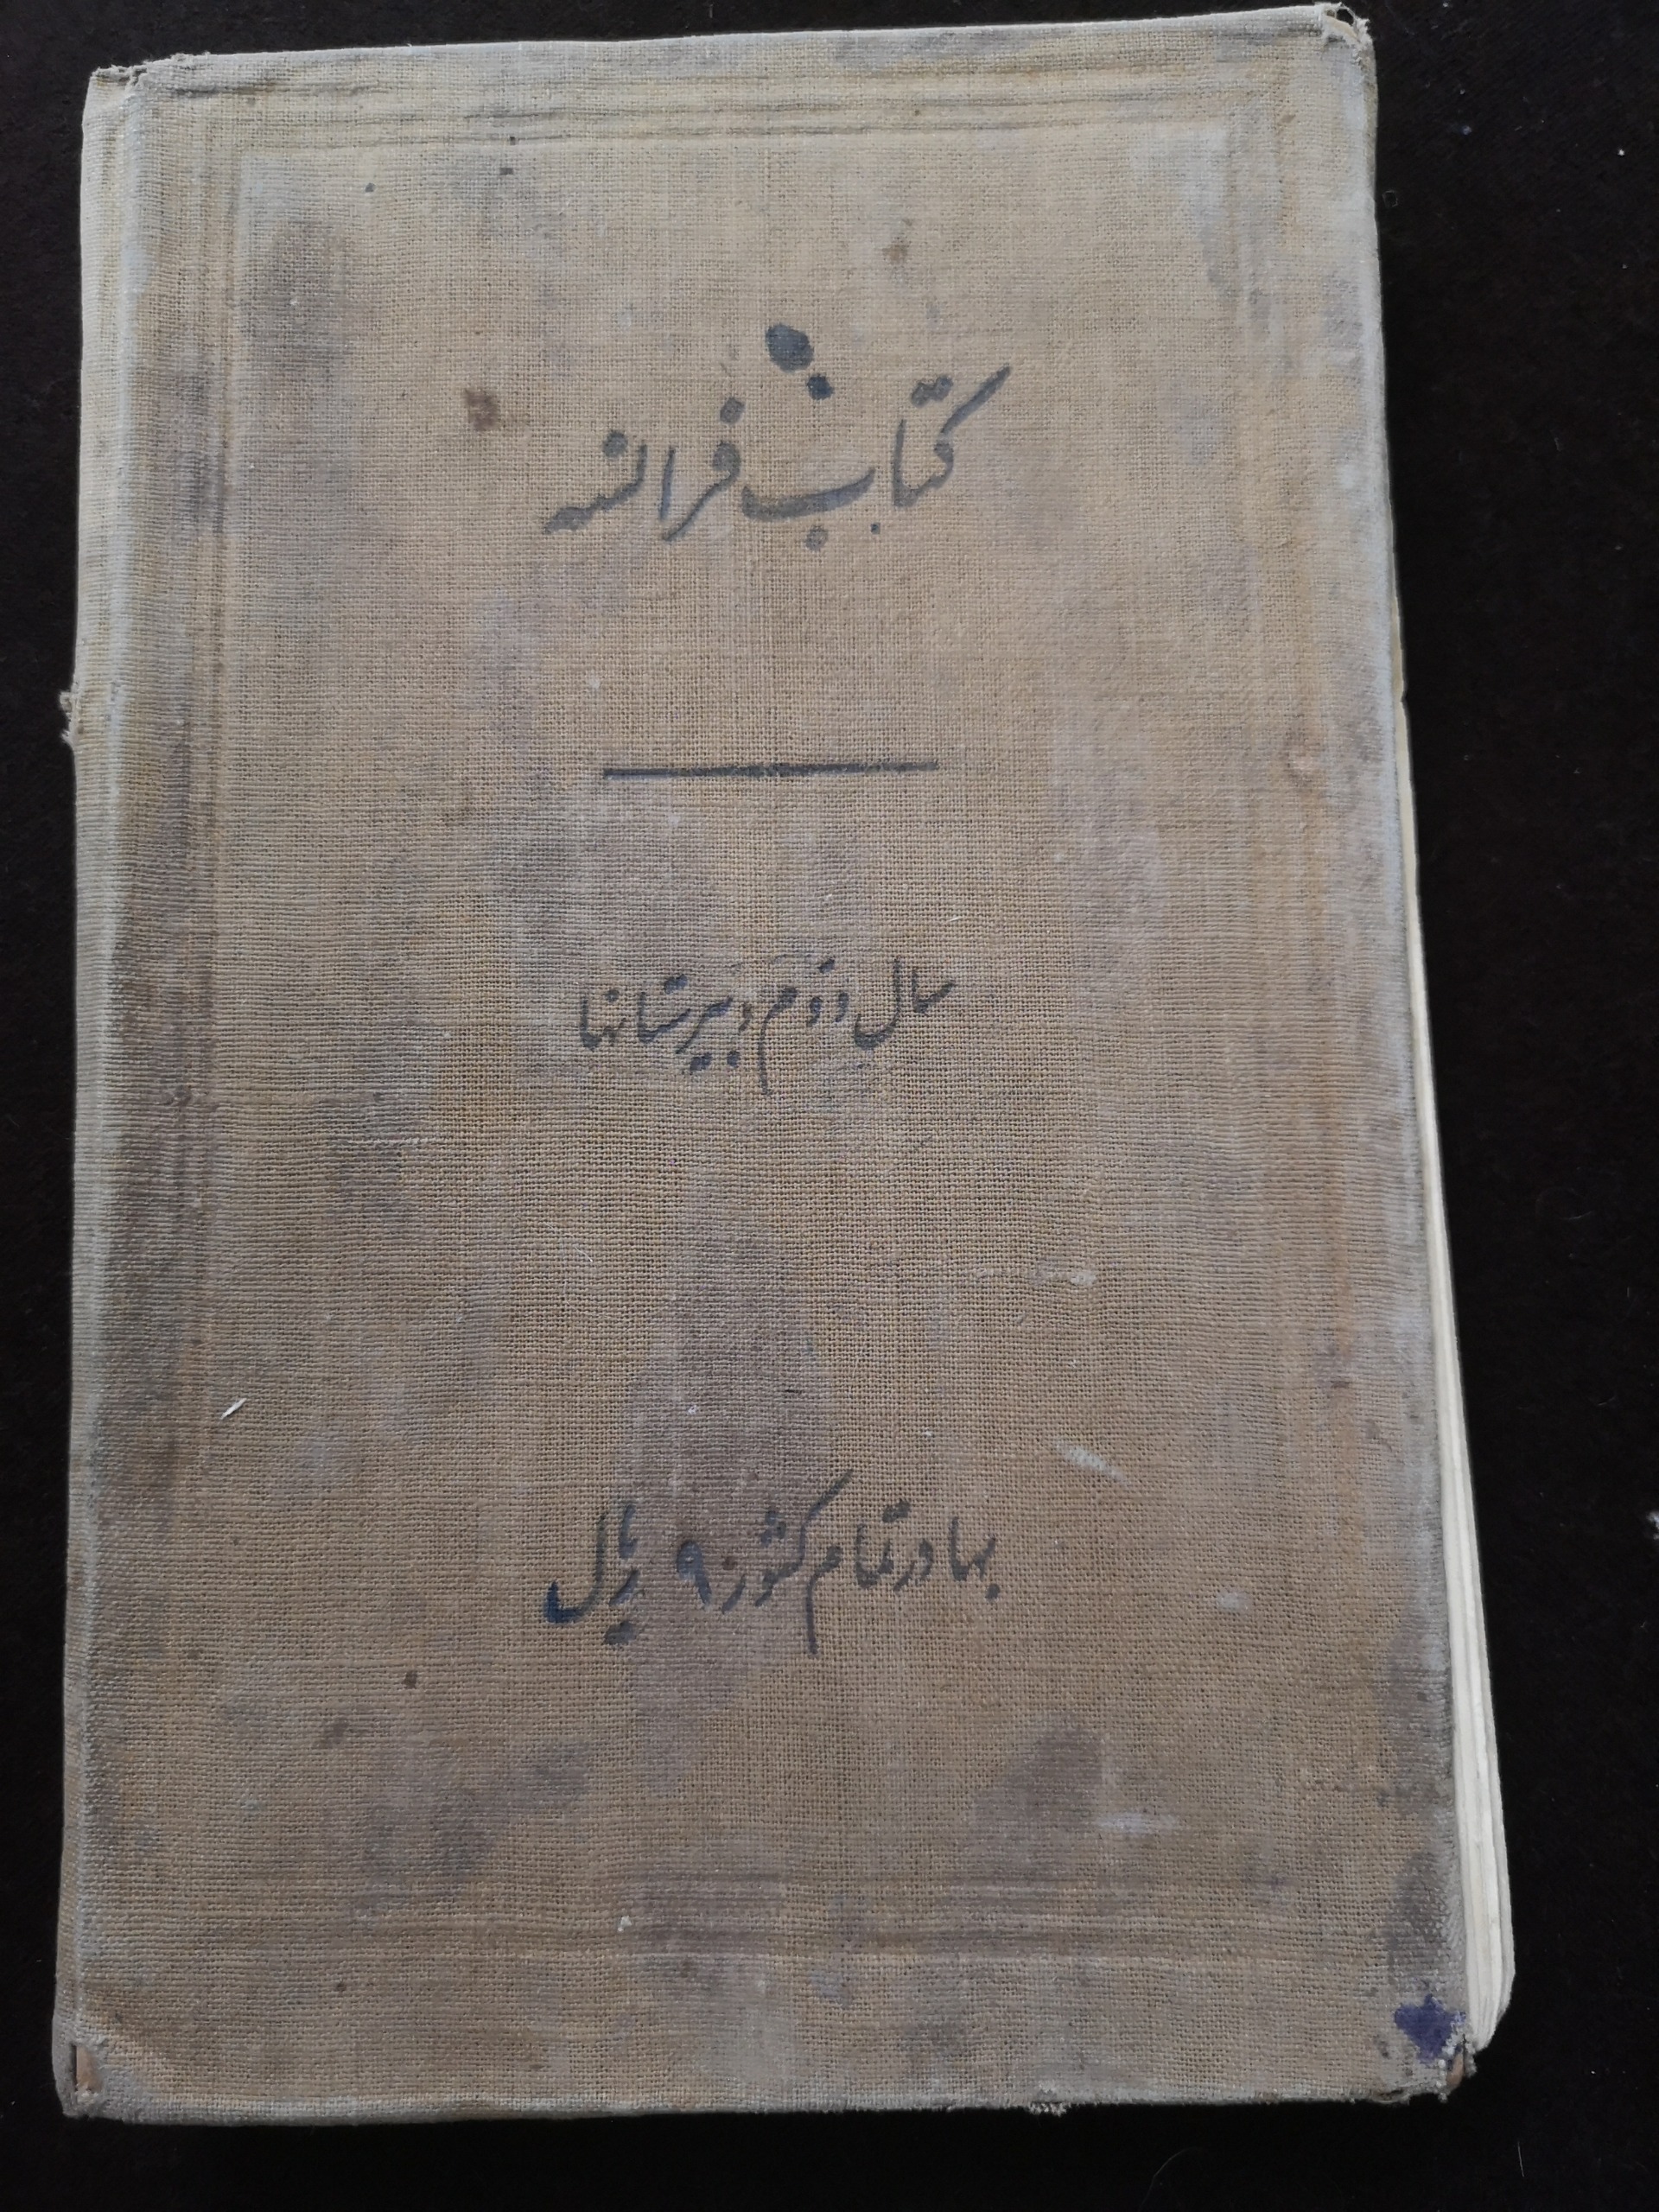 کتاب فرانسه
سال دوّم دبیرستانها
بها در تمام کشور ۹ ریال